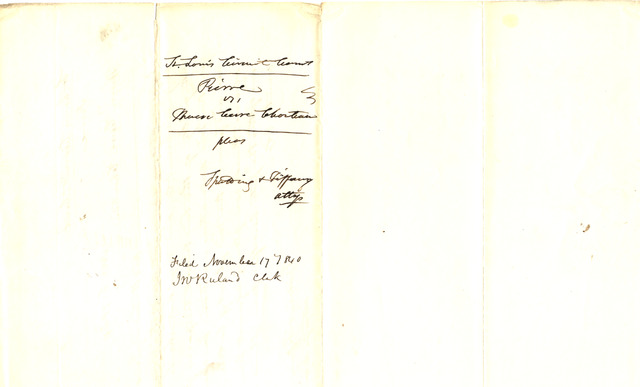 St. Louis Circuit Court
Pierre
vs,
Therese Cerre Chouteau
pleas
Spalding & Tiffany
attys
Filed November 17th 1840
Jno Ruland Clk